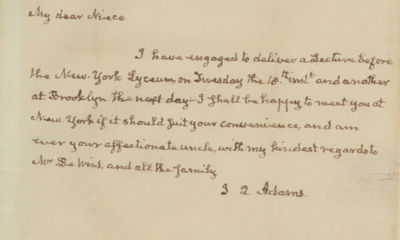 My dear Niece
I have engaged to deliver a Lecture before
the New-York Lyceum, on Tuesday the 18th. inst and another
at Brooklyn the next day - I shall be happy to meet you at
New York if it should suit your convenience, and am
ever your affectionate uncle, with my kindest regards to
Mr De Wint, and all the family
J Q Adams.